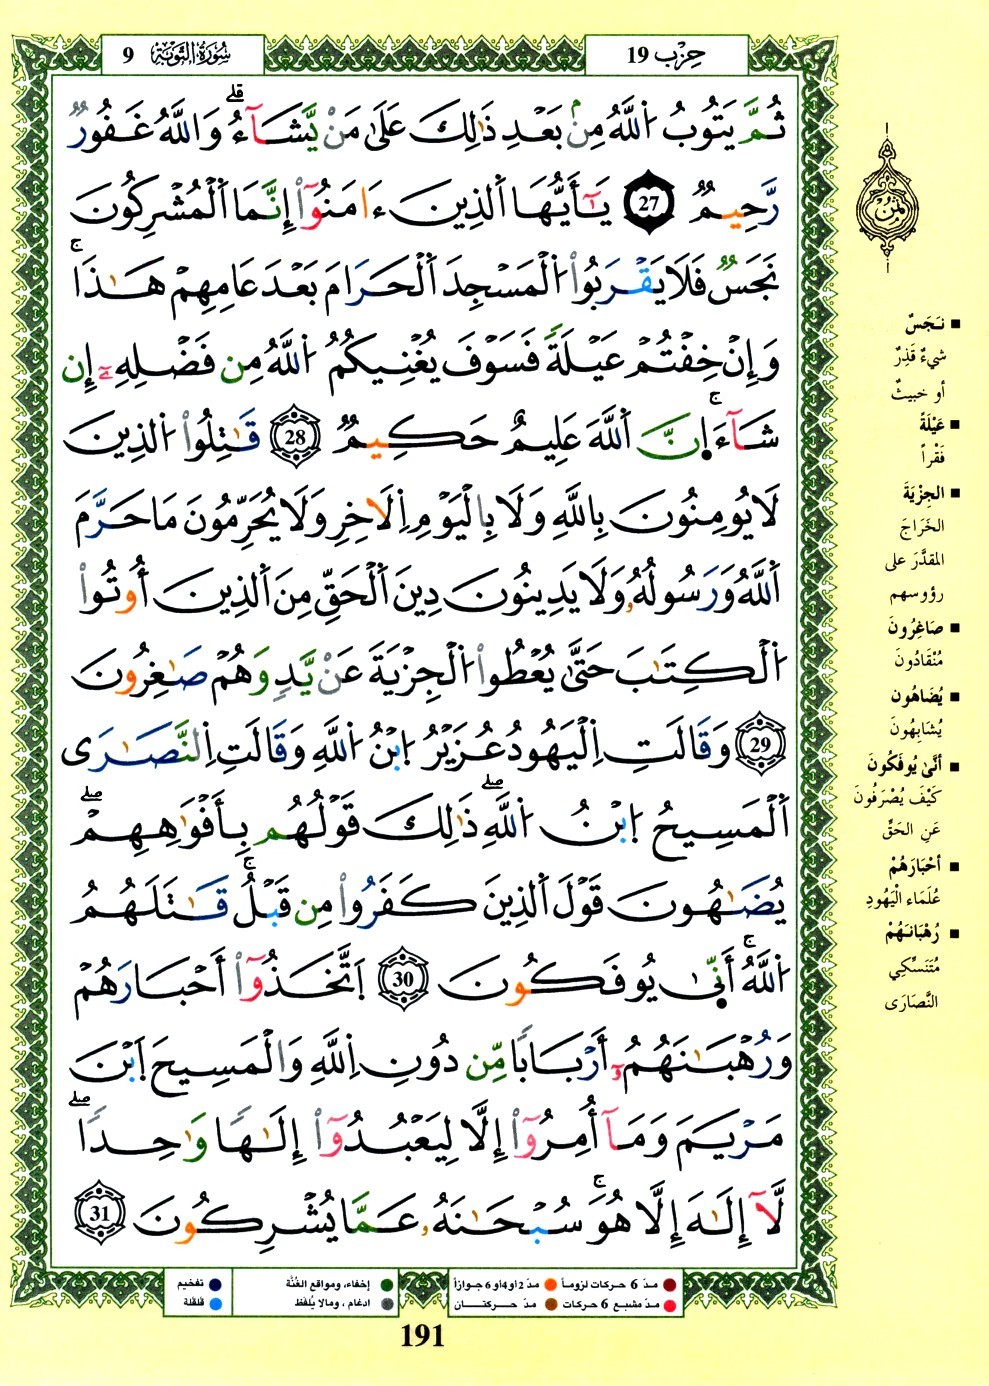 حِزْب 19
سُورَةُ التَّوْبَة 9
ثُمَّ يَتُوبُ اُ۬للَّهُ مِنۢ بَعْدِ ذَٰلِكَ عَلَىٰ مَنْ يَّشَآءُ ۖ وَاللَّهُ غَفُورٌ
رَّحِيمٌ 27 يَٰٓأَيُّهَا اَ۬لذِينَ ءَامَنُوٓاْ إِنَّمَا اَ۬لْمُشْرِكُونَ
نَجَسٌ فَلَا يَقْرَبُواْ اُ۬لْمَسْجِدَ اَ۬لْحَرَامَ بَعْدَ عَامِهِمْ هَٰذَا ۚ
وَإِنْ خِفْتُمْ عَيْلَةً فَسَوْفَ يُغْنِيكُمُ اُ۬للَّهُ مِن فَضْلِهِۦٓ إِن
شَآءَ ۚ اِنَّ اَ۬للَّهَ عَلِيمٌ حَكِيمٌ 28 قَٰتِلُواْ اُ۬لذِينَ
لَا يُومِنُونَ بِاللَّهِ وَلَا بِالْيَوْمِ اِ۬لَاخِرِ وَلَا يُحَرِّمُونَ مَا حَرَّمَ
اَ۬للَّهُ وَرَسُولُهُۥ وَلَا يَدِينُونَ دِينَ اَ۬لْحَقِّ مِنَ اَ۬لذِينَ أُوتُواْ
اُ۬لْكِتَٰبَ حَتَّىٰ يُعْطُواْ اُ۬لْجِزْيَةَ عَنْ يَّدٍ وَهُمْ صَٰغِرُونَ
29 وَقَالَتِ اِ۬لْيَهُودُ عُزَيْرُ اُ۪بْنُ اُ۬للَّهِ وَقَالَتِ اِ۬لنَّصَٰرَى
اَ۬لْمَسِيحُ اُ۪بْنُ اُ۬للَّهِ ۖ ذَٰلِكَ قَوْلُهُم بِأَفْوَٰهِهِمْ ۖ
يُضَٰهُونَ قَوْلَ اَ۬لذِينَ كَفَرُواْ مِن قَبْلُ ۚ قَٰتَلَهُمُ
اُ۬للَّهُ ۚ أَنّ۪ىٰ يُوفَكُونَ 30 اَ۪تَّخَذُوٓاْ أَحْبَارَهُمْ
وَرُهْبَٰنَهُمُۥٓ أَرْبَابًا مِّن دُونِ اِ۬للَّهِ وَالْمَسِيحَ اَ۪بْنَ
مَرْيَمَ ۖ وَمَآ أُمِرُوٓاْ إِلَّا لِيَعْبُدُوٓاْ إِلَٰهًا وَٰحِدًا
لَّآ إِلَٰهَ إِلَّا هُوَ ۚ سُبْحَٰنَهُۥ عَمَّا يُشْرِكُونَ 31
ثُمُن
■ نَجَسٌ
شيءٌ قَذِرٌ
أو خبيثٌ
■ عَيْلَةً
فَقْراً
■ الجِزْيَةَ
الخَرَاجَ
المقدَّرَ على
رؤوسهم
■ صَاغِرُونَ
مُنْقَادُونَ
■ يُضَاهُون
يُشَابِهُونَ
■ أَنَّىٰ يُوفَكُونَ
كَيْفَ يُصْرَفُونَ
عَنِ الحَقِّ
■ أَحْبَارَهُمْ
عُلَمَاءَ الْيَهُودِ
■ رُهْبَانَهُمْ
مُتَنَسِّكِي
النَّصَارَى
● مدّ 6 حركات لزوماً ● مدّ 2 أو 4 أو 6 جوازاً
● مدّ مشبع 6 حركات ● مدّ حركتان
● إخفاء، ومواقع الغُنَّة
● ادغام ، ومالا يُلفظ
● تفخيم
● قلقلة
191